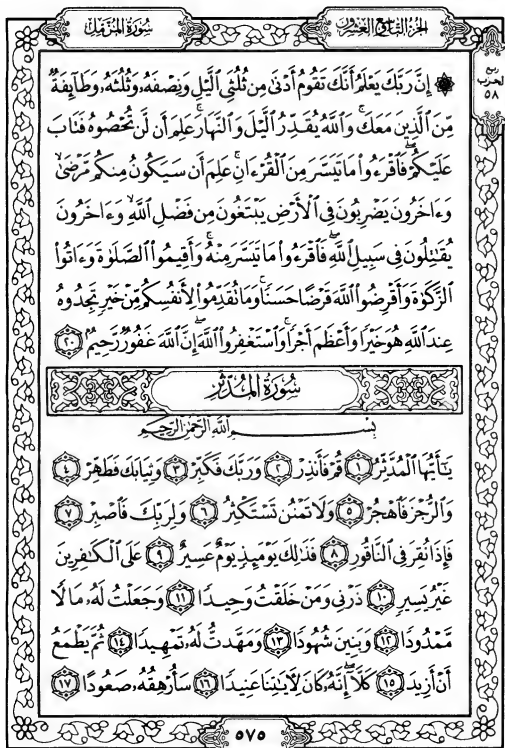 سُورَةُ المُزَّمِّل
الجُزْءُ التَّاسِعُ وَالعِشْرُونَ
ربع
الحزب
٥٨
۞ إِنَّ رَبَّكَ يَعْلَمُ أَنَّكَ تَقُومُ أَدْنَىٰ مِن ثُلُثَىِ ٱلَّيْلِ وَنِصْفَهُۥ وَثُلُثَهُۥ وَطَآئِفَةٌ
مِّنَ ٱلَّذِينَ مَعَكَ ۚ وَٱللَّهُ يُقَدِّرُ ٱلَّيْلَ وَٱلنَّهَارَ ۚ عَلِمَ أَن لَّن تُحْصُوهُ فَتَابَ
عَلَيْكُمْ ۖ فَٱقْرَءُوا۟ مَا تَيَسَّرَ مِنَ ٱلْقُرْءَانِ ۚ عَلِمَ أَن سَيَكُونُ مِنكُم مَّرْضَىٰ ۙ
وَءَاخَرُونَ يَضْرِبُونَ فِى ٱلْأَرْضِ يَبْتَغُونَ مِن فَضْلِ ٱللَّهِ ۙ وَءَاخَرُونَ
يُقَٰتِلُونَ فِى سَبِيلِ ٱللَّهِ ۖ فَٱقْرَءُوا۟ مَا تَيَسَّرَ مِنْهُ ۚ وَأَقِيمُوا۟ ٱلصَّلَوٰةَ وَءَاتُوا۟
ٱلزَّكَوٰةَ وَأَقْرِضُوا۟ ٱللَّهَ قَرْضًا حَسَنًا ۚ وَمَا تُقَدِّمُوا۟ لِأَنفُسِكُم مِّنْ خَيْرٍ تَجِدُوهُ
عِندَ ٱللَّهِ هُوَ خَيْرًا وَأَعْظَمَ أَجْرًا ۚ وَٱسْتَغْفِرُوا۟ ٱللَّهَ ۖ إِنَّ ٱللَّهَ غَفُورٌ رَّحِيمٌۢ ٢٠
سُورَةُ المُدَّثِّر
بِسْمِ ٱللَّهِ ٱلرَّحْمَٰنِ ٱلرَّحِيمِ
يَٰٓأَيُّهَا ٱلْمُدَّثِّرُ ١ قُمْ فَأَنذِرْ ٢ وَرَبَّكَ فَكَبِّرْ ٣ وَثِيَابَكَ فَطَهِّرْ ٤
وَٱلرُّجْزَ فَٱهْجُرْ ٥ وَلَا تَمْنُن تَسْتَكْثِرُ ٦ وَلِرَبِّكَ فَٱصْبِرْ ٧
فَإِذَا نُقِرَ فِى ٱلنَّاقُورِ ٨ فَذَٰلِكَ يَوْمَئِذٍ يَوْمٌ عَسِيرٌ ٩ عَلَى ٱلْكَٰفِرِينَ
غَيْرُ يَسِيرٍ ١٠ ذَرْنِى وَمَنْ خَلَقْتُ وَحِيدًا ١١ وَجَعَلْتُ لَهُۥ مَالًا
مَّمْدُودًا ١٢ وَبَنِينَ شُهُودًا ١٣ وَمَهَّدتُّ لَهُۥ تَمْهِيدًا ١٤ ثُمَّ يَطْمَعُ
أَنْ أَزِيدَ ١٥ كَلَّآ ۖ إِنَّهُۥ كَانَ لِءَايَٰتِنَا عَنِيدًا ١٦ سَأُرْهِقُهُۥ صَعُودًا ١٧
٥٧٥